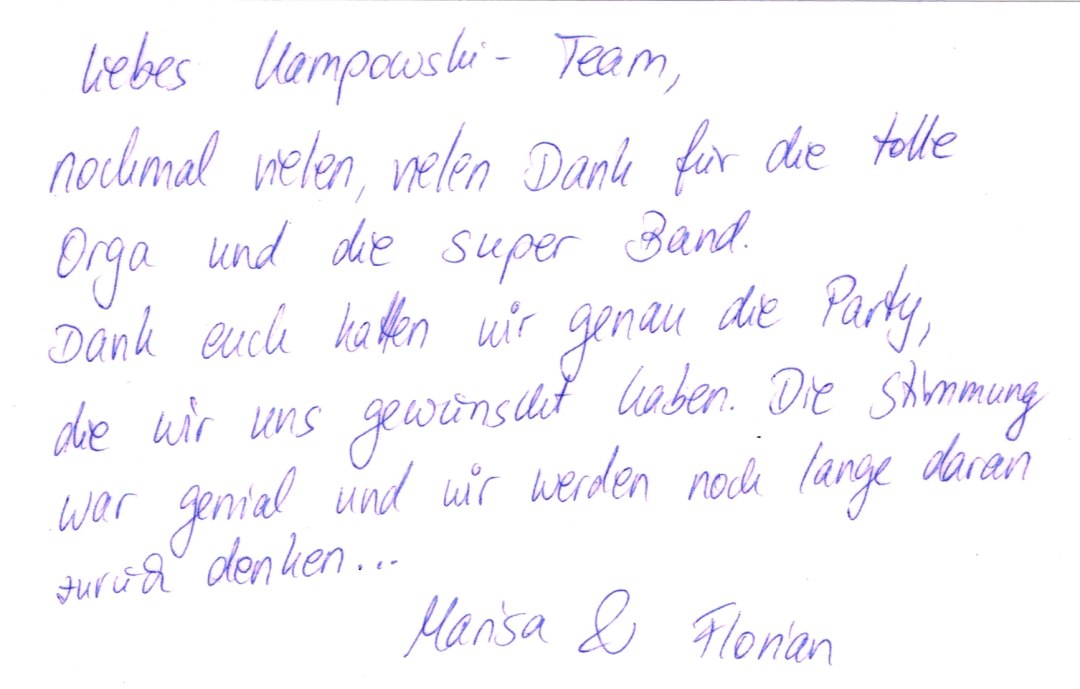 liebes Kampowski-Team,
nochmal vielen, vielen Dank für die tolle
Orga und die super Band.
Dank euch hatten wir genau die Party,
die wir uns gewünscht haben. Die Stimmung
war genial und wir werden noch lange daran
zurück denken...
Marisa & Florian